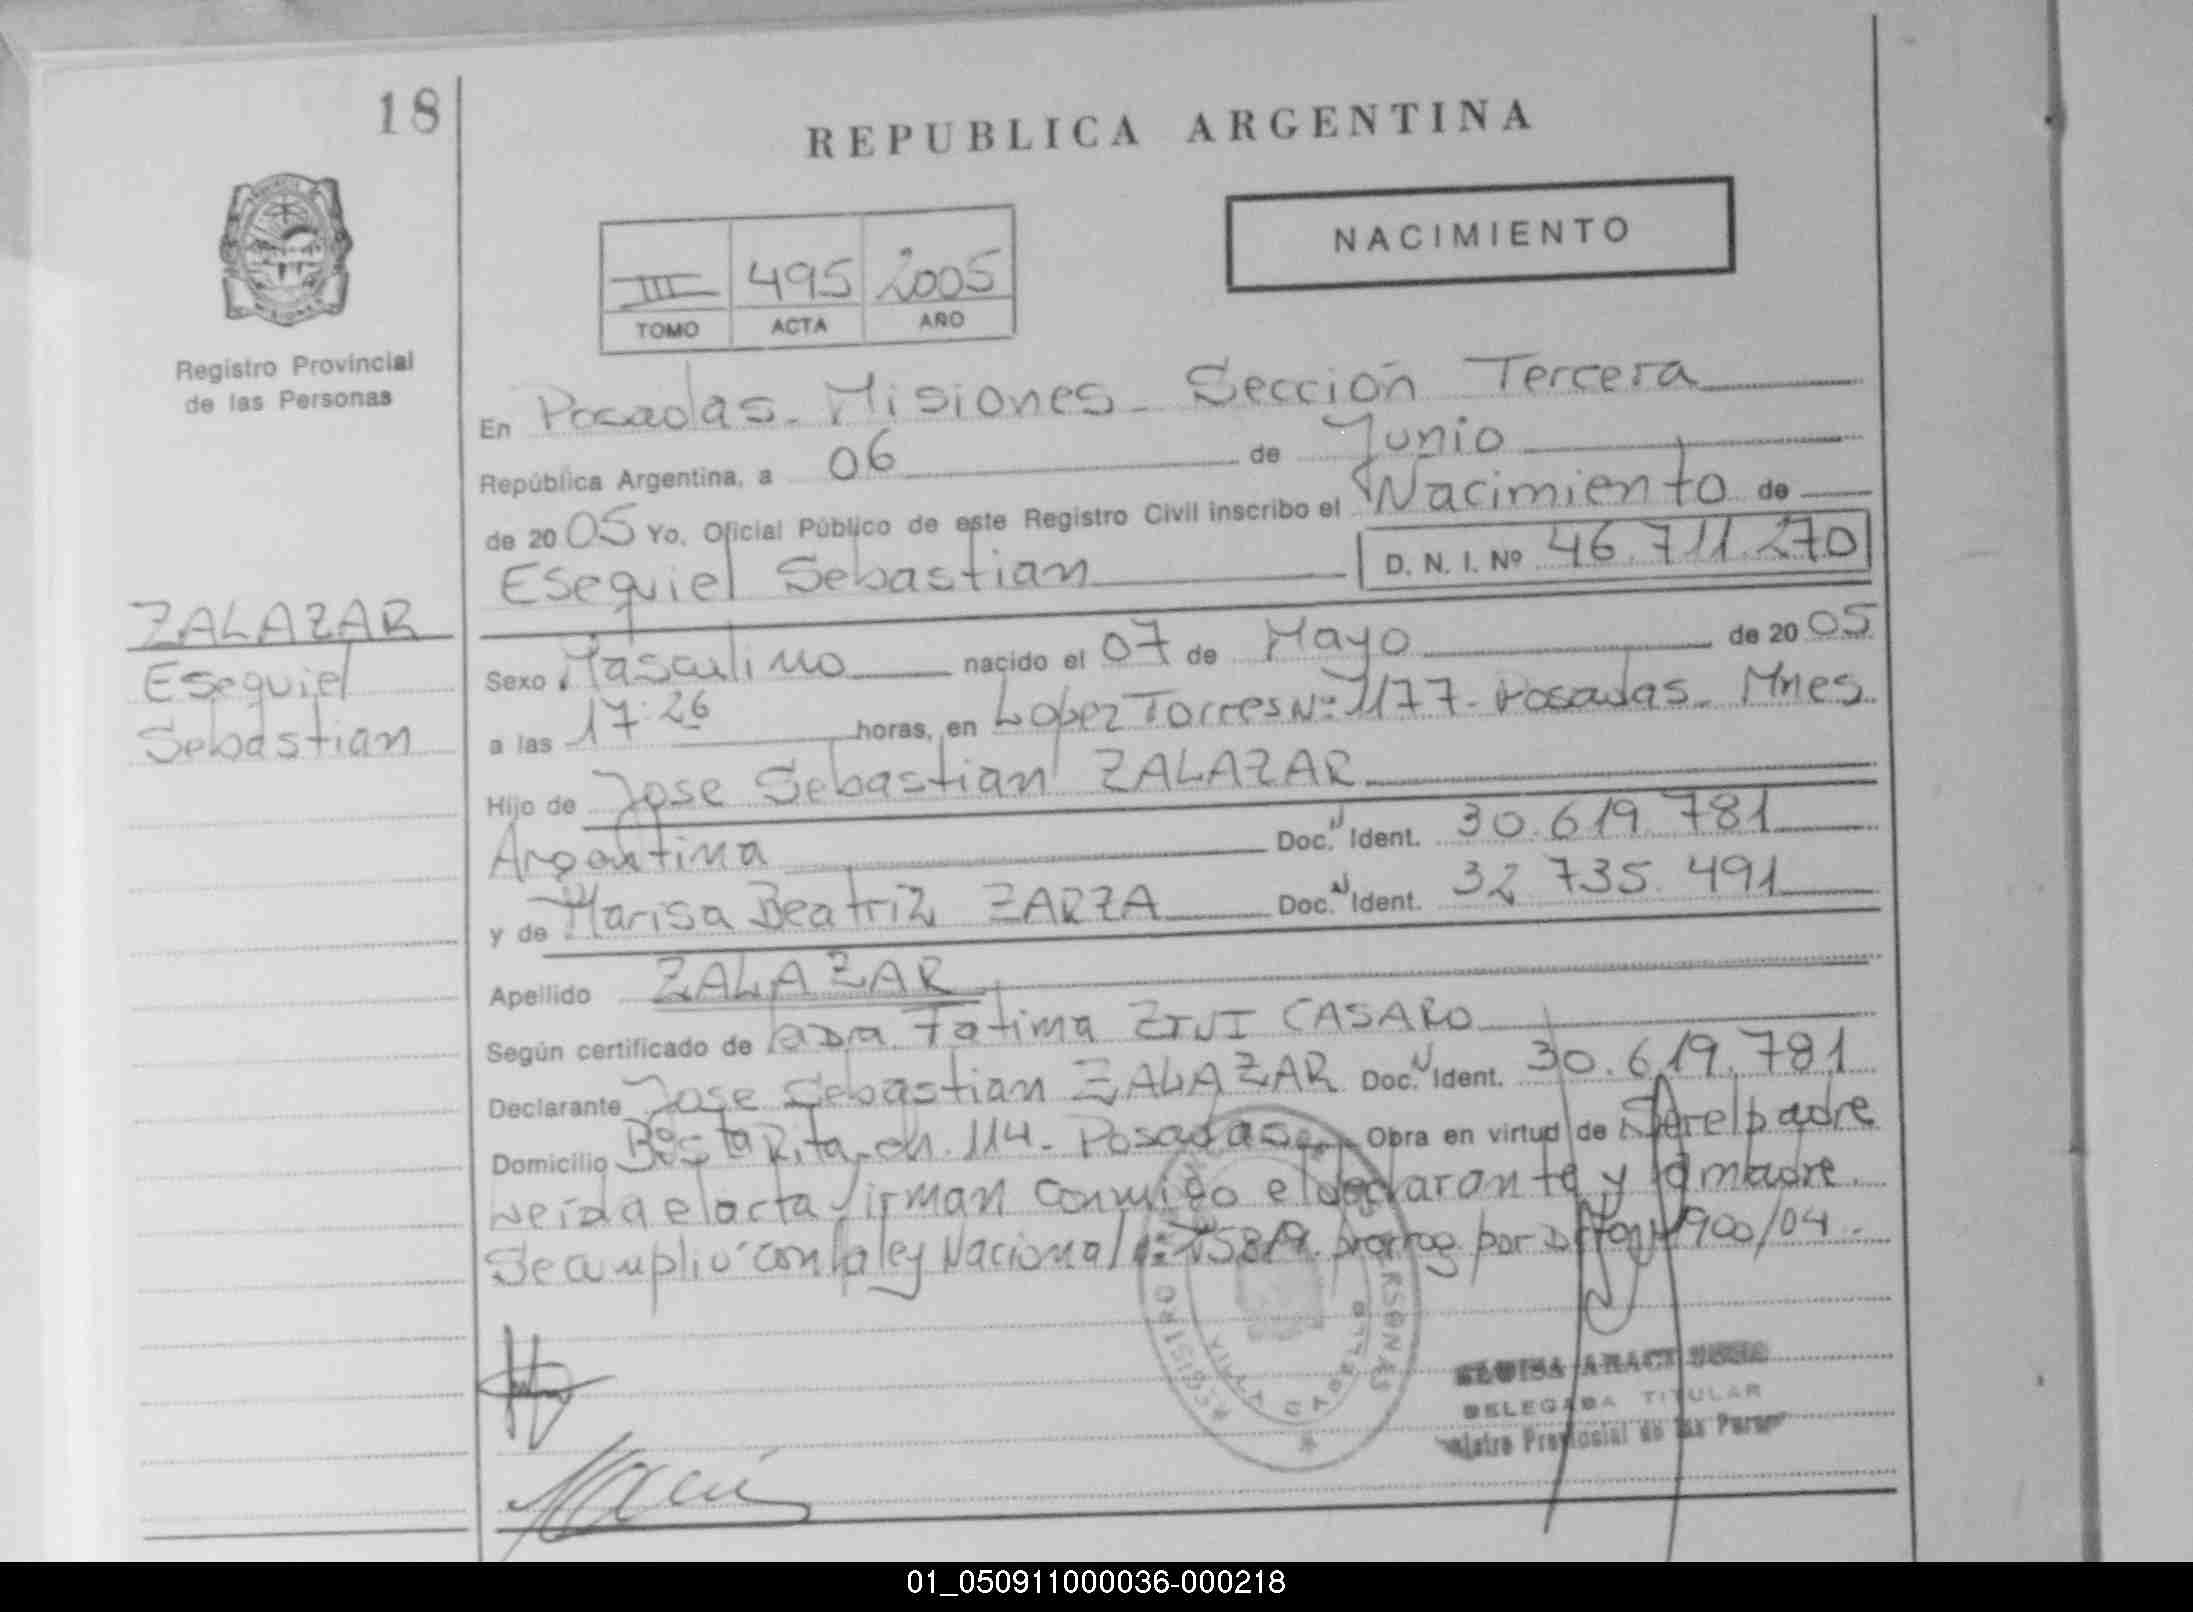 18
REPUBLICA ARGENTINA
NACIMIENTO
III 495 2005
TOMO ACTA AÑO
Registro Provincial
de las Personas
En Posadas. Misiones. Sección Tercera
República Argentina, a 06 de Junio
de 2005 Yo, Oficial Público de este Registro Civil inscribo el Nacimiento de
Esequiel Sebastian D. N. I. Nº 46.711.270
ZALAZAR
Esequiel
Sebastian
Sexo Masculino nacido el 07 de Mayo de 2005
a las 17:26 horas, en Lopez Torres Nº 1177. Posadas. Mnes.
Hijo de Jose Sebastian ZALAZAR
Argentina Doc. N Ident. 30.619.781
y de Marisa Beatriz ZARZA Doc. N Ident. 32.735.491
Apellido ZALAZAR
Según certificado de Fatima CASARO
Declarante Jose Sebastian ZALAZAR Doc. N Ident. 30.619.781
Domicilio Bº Sta Rita. ch. 114. Posadas. Obra en virtud de Ser el padre
Leida el acta firman conmigo el declarante y la madre.
Se cumplio con la ley Nacional Nº 25819. prorrog por 1900/04.
REGISTRO PERSONAS
VILLA CABELLO
DELEGADA TITULAR
Provincial de las
01_050911000036-000218